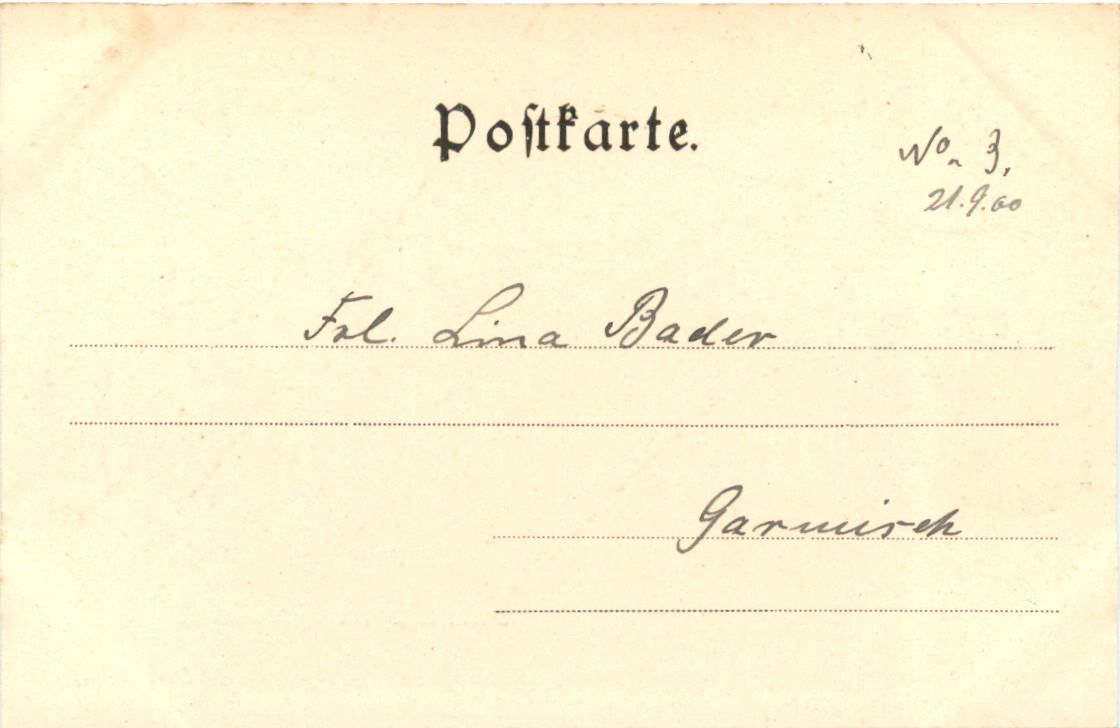 Postkarte.
No. 3,
21.9.00
Frl. Lina Bader
Garmisch